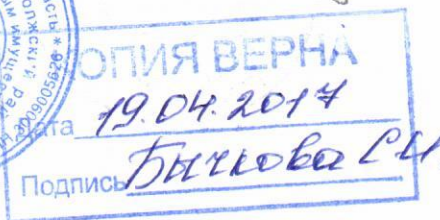 ОПИЯ ВЕРНА
Дата 19.04.2017
Подпись Бычкова С И